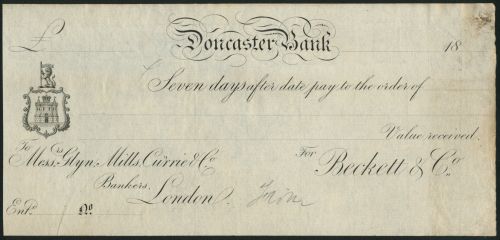 £ Doncaster Bank 18
Seven days after date pay to the order of
Value received.
To Messrs. Glyn, Mills, Currie & Co. For Beckett & Co.
Bankers,
London.
Entd. No.